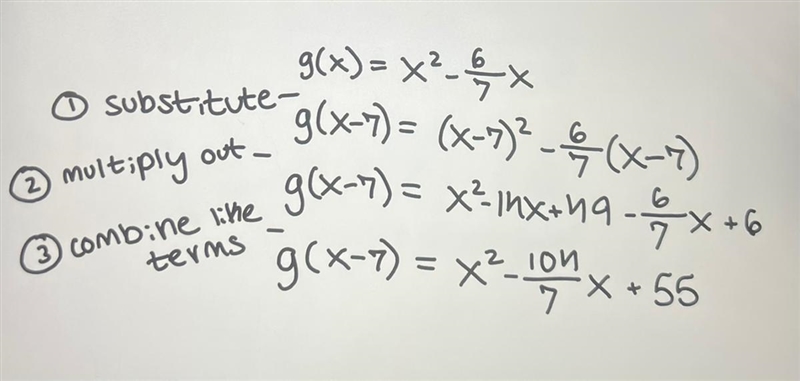 g(x) = x² - 6/7 x
① substitute - g(x-7) = (x-7)² - 6/7 (x-7)
② multiply out - g(x-7) = x² - 14x + 49 - 6/7 x + 6
③ combine like terms - g(x-7) = x² - 104/7 x + 55